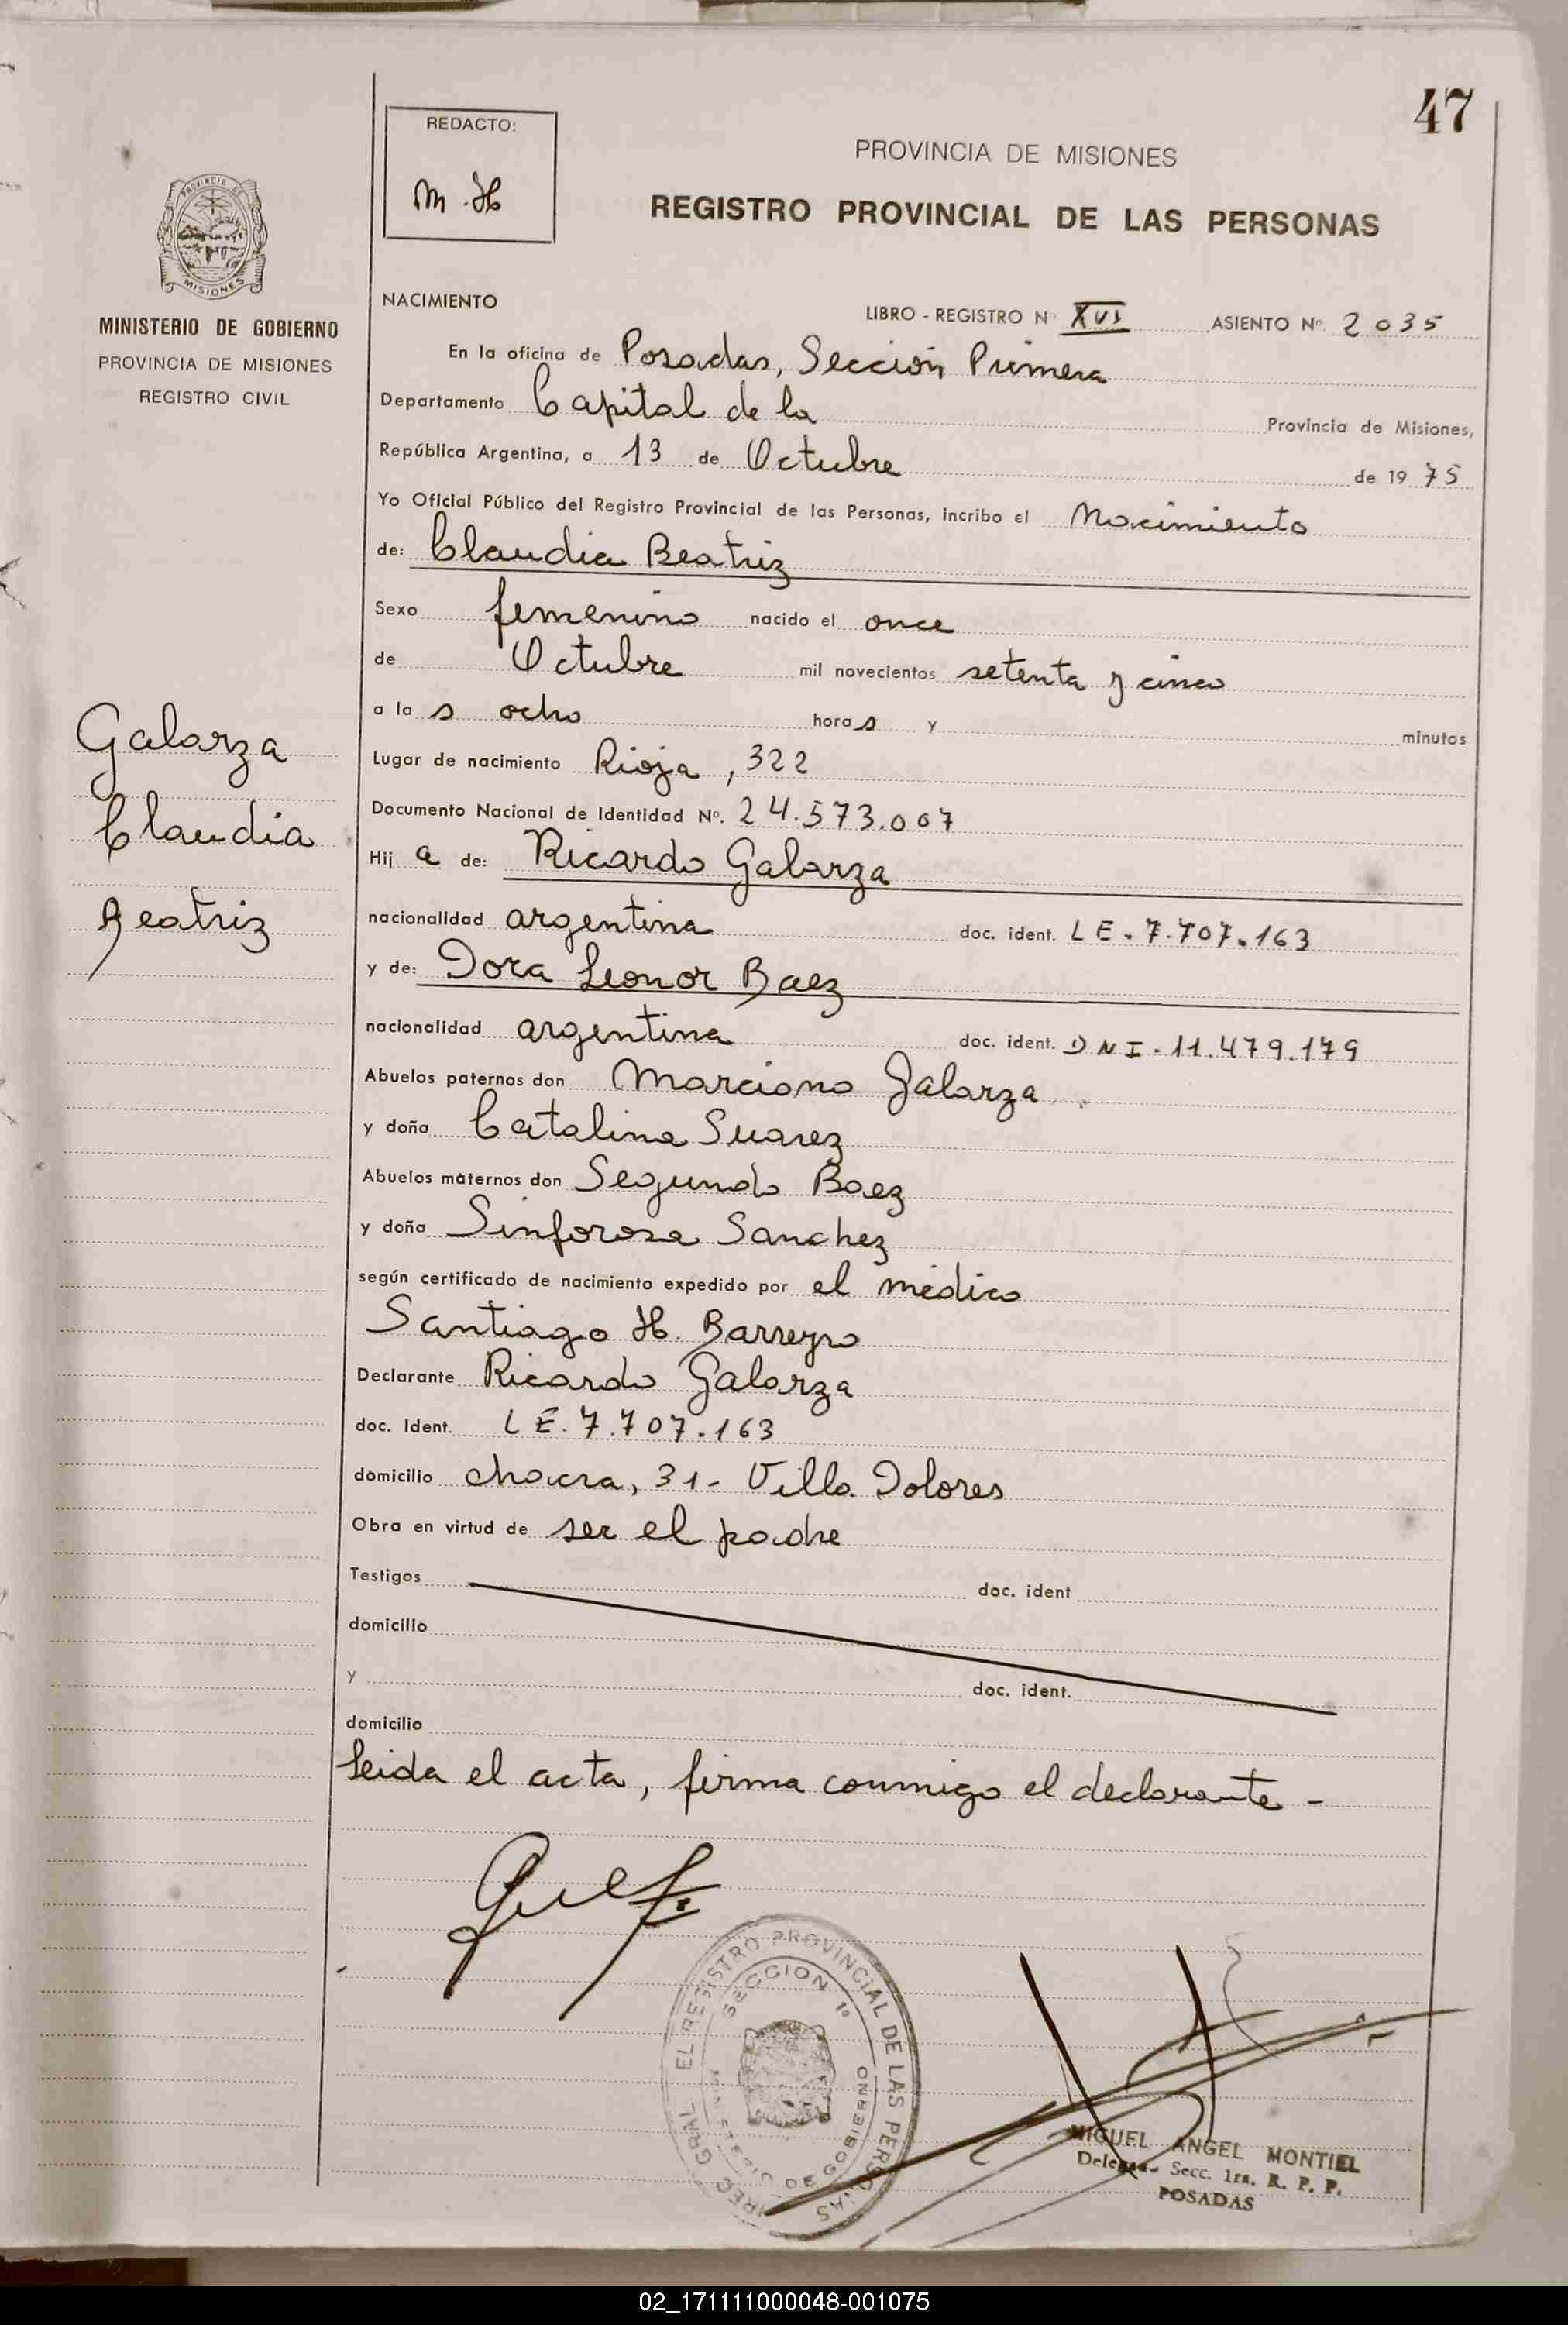 47
REDACTO:
M.H
PROVINCIA DE MISIONES
REGISTRO PROVINCIAL DE LAS PERSONAS
PROVINCIA DE
MISIONES
MINISTERIO DE GOBIERNO
PROVINCIA DE MISIONES
REGISTRO CIVIL
NACIMIENTO
LIBRO - REGISTRO N° XVI ASIENTO Nº 2035
En la oficina de Posadas, Sección Primera
Departamento Capital de la Provincia de Misiones,
República Argentina, a 13 de Octubre de 1975
Yo Oficial Público del Registro Provincial de las Personas, incribo el Nacimiento
de: Claudia Beatriz
Sexo femenino nacido el once
de Octubre mil novecientos setenta y cinco
a las ocho horas y minutos
Lugar de nacimiento Rioja, 322
Documento Nacional de Identidad Nº. 24.573.007
Hija de: Ricardo Galarza
nacionalidad argentina doc. ident. LE. 7.707.163
y de: Dora Leonor Baez
nacionalidad argentina doc. ident. DNI. 11.479.179
Abuelos paternos don Marciano Galarza
y doña Catalina Suarez
Abuelos maternos don Segundo Baez
y doña Sinforosa Sanchez
según certificado de nacimiento expedido por el médico
Santiago H. Barreyro
Declarante Ricardo Galarza
doc. Ident. LE. 7.707.163
domicilio chacra, 31- Villa Dolores
Obra en virtud de ser el padre
Testigos doc. ident
domicilio
y doc. ident.
domicilio
leida el acta, firma conmigo el declarante -
Galarza
Claudia
Beatriz
EL REGISTRO PROVINCIAL DE LAS PERSONAS
SECCION 1ª
DE GOBIERNO
MIGUEL ANGEL MONTIEL
Delegado Secc. 1ra. R. P. P.
POSADAS
02_171111000048-001075